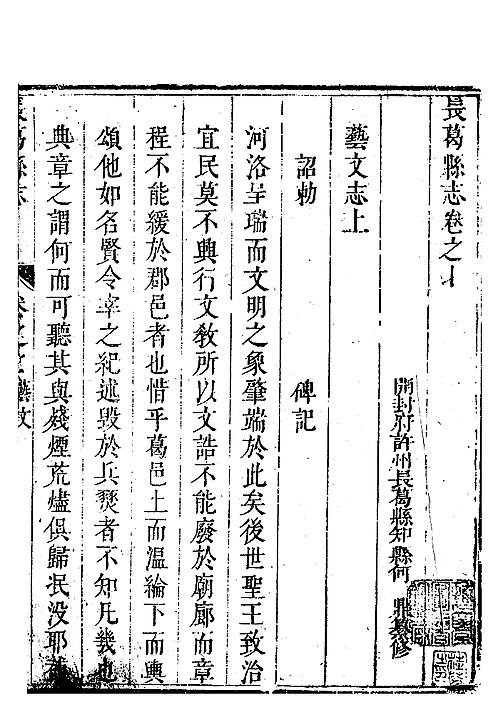 長葛縣志卷之七
開封府許州長葛縣知縣何 鼎纂修
藝文志上
詔勅 碑記
河洛呈瑞而文明之象肇端於此矣後世聖王致治
宜民莫不興行文教所以文誥不能廢於廟廊而章
程不能緩於郡邑者也惜乎葛邑上而溫綸下而輿
頌他如名賢令宰之紀述毀於兵燹者不知凡幾也
典章之謂何而可聽其與殘煙荒燼俱歸泯没耶
長葛縣志 卷之七 藝文